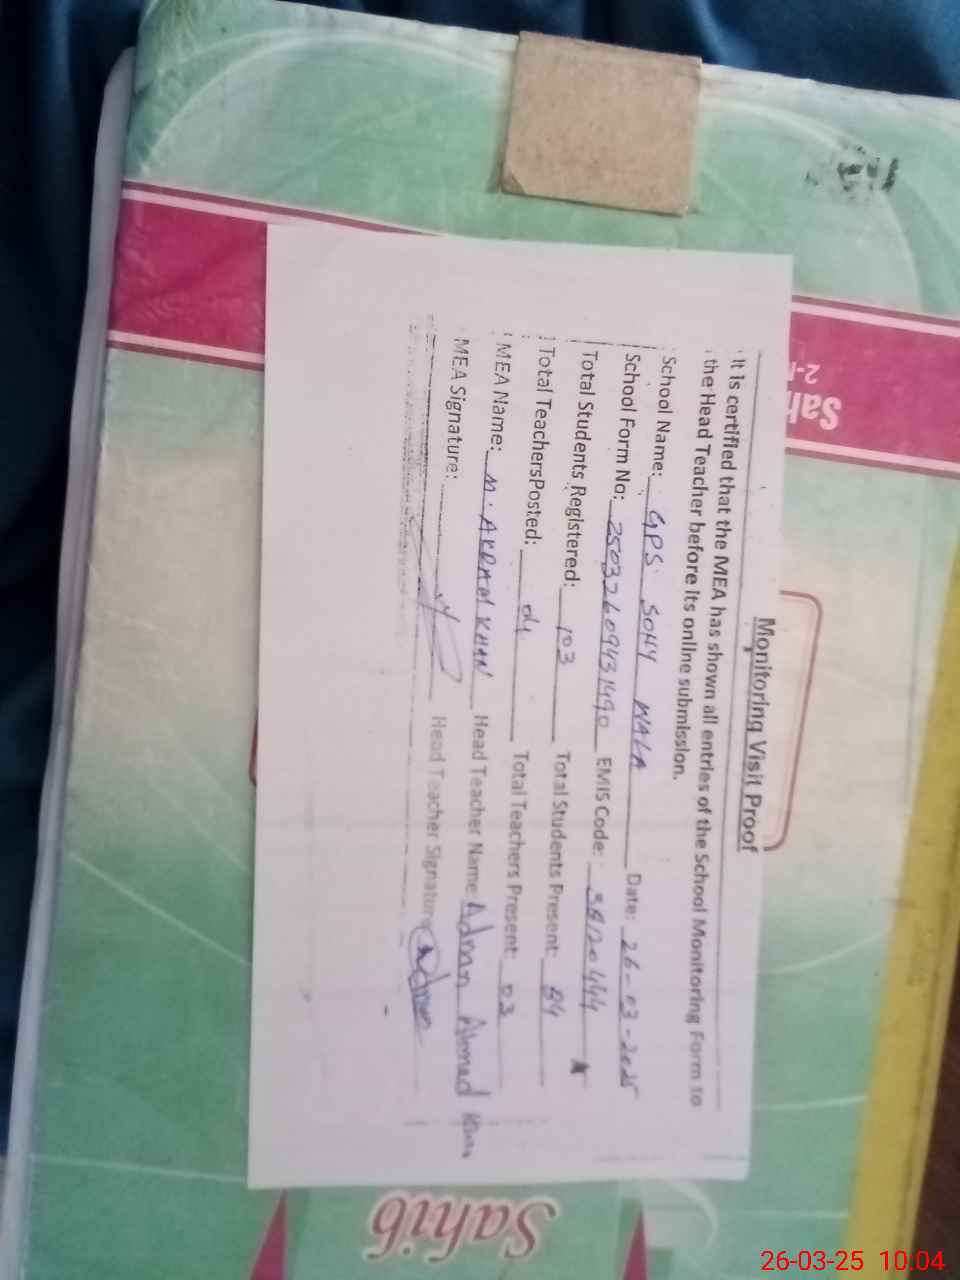 Monitoring Visit Proof
It is certified that the MEA has shown all entries of the School Monitoring Form to
the Head Teacher before its online submission.
School Name: GPS SOHY WALA Date: 26-03-2025
School Form No: 25032609431490 EMIS Code: 38120444
Total Students Registered: 103 Total Students Present: 84
Total Teachers Posted: 04 Total Teachers Present: 03
MEA Name: M. AKRAM KHAN Head Teacher Name: Adnan Ahmad Khan
MEA Signature: Head Teacher Signature: Adnan
Sahib
26-03-25 10:04